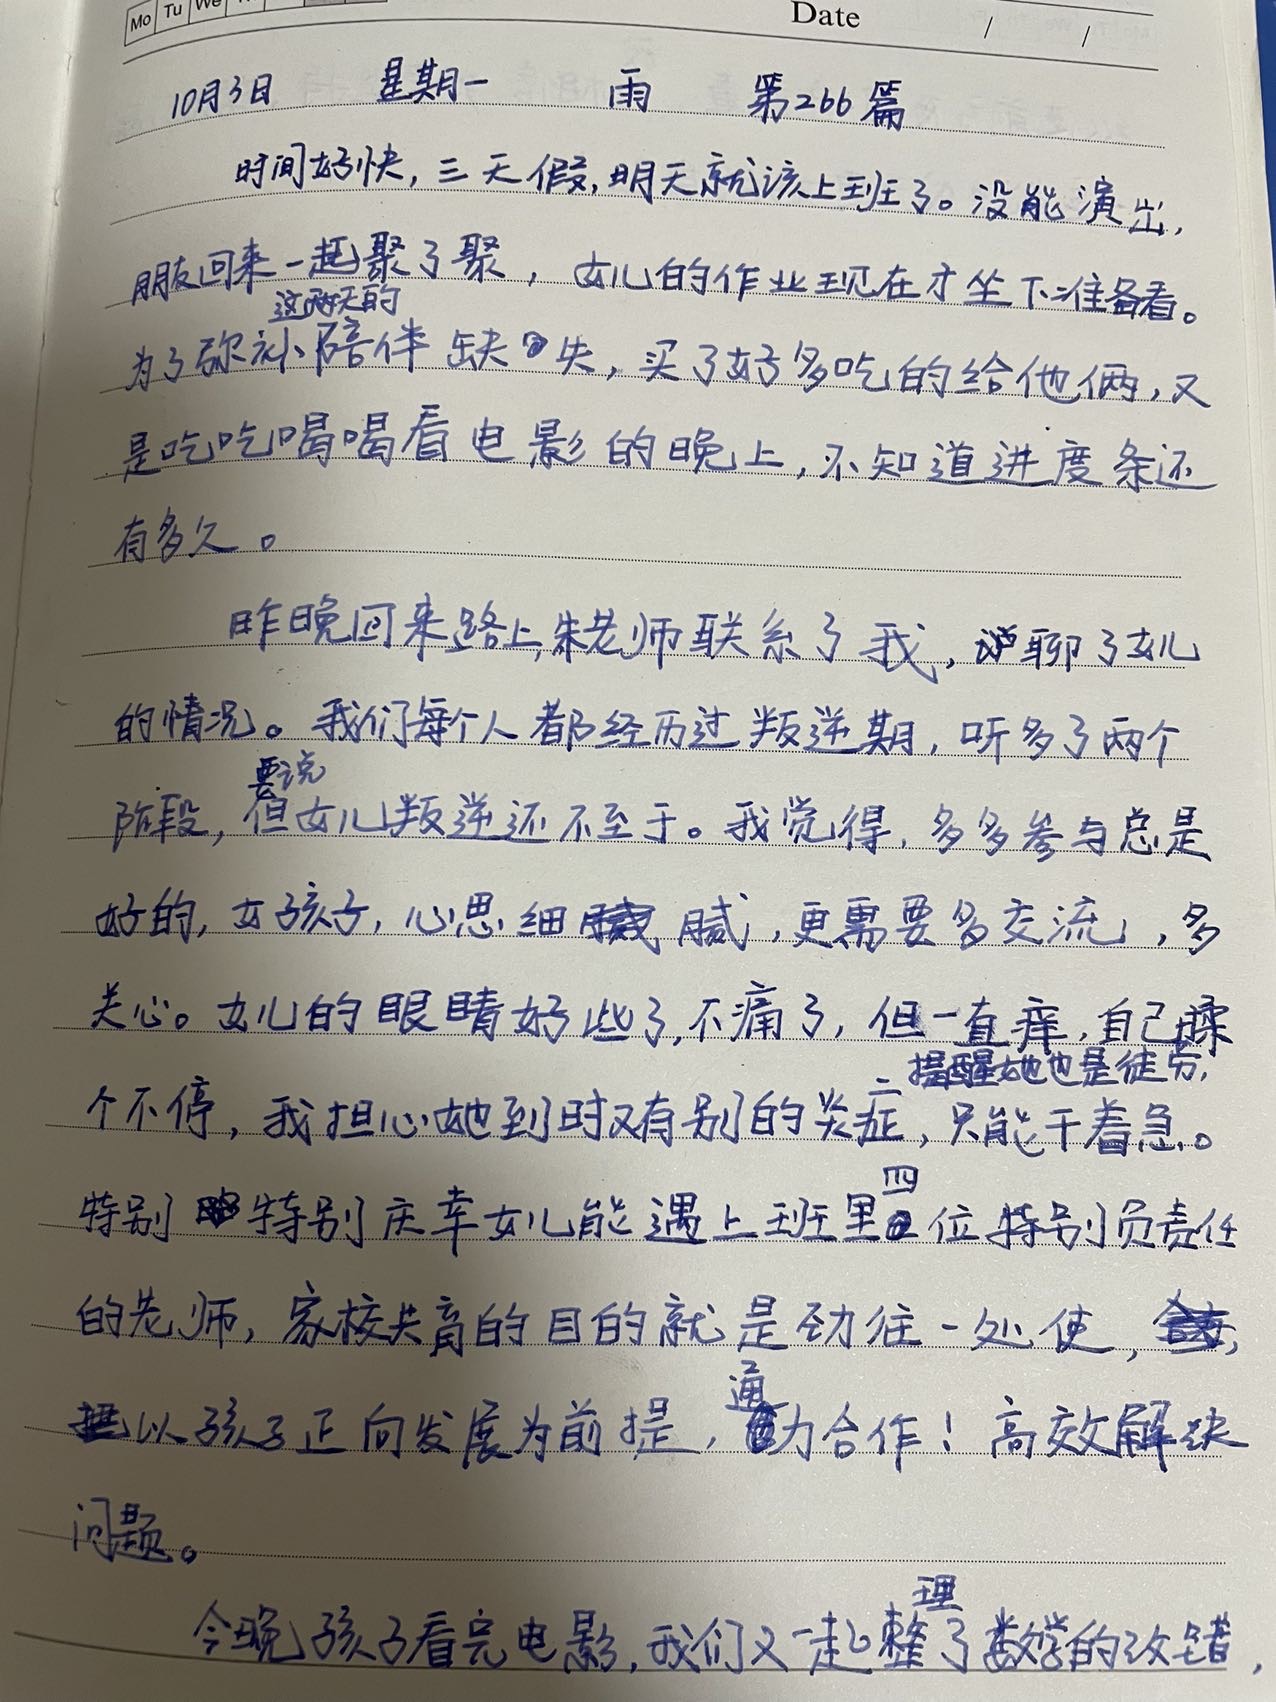 Mo Tu We
Date / /
10月3日 星期一 雨 第266篇
时间好快，三天假，明天就该上班了。没能演出，
朋友回来一起聚了聚，女儿的作业现在才坐下准备看。
这两天的
为了弥补陪伴缺失，买了好多吃的给他俩，又
是吃吃喝喝看电影的晚上，不知道进度条还
有多久。
昨晚回来路上，朱老师联系了我，聊了女儿
的情况。我们每个人都经历过叛逆期，听多了两个
要说
阶段，但女儿叛逆还不至于。我觉得，多多参与总是
好的，女孩子，心思细腻，更需要多交流，多
关心。女儿的眼睛好些了，不痛了，但一直痒，自己揉
提醒她也是徒劳，
个不停，我担心她到时又有别的炎症，只能干着急。
四
特别特别庆幸女儿能遇上班里位特别负责任
的老师，家校共育的目的就是劲往一处使，
通
以孩子正向发展为前提，力合作！高效解决
问题。
理
今晚孩子看完电影，我们又一起整了数学的改错，